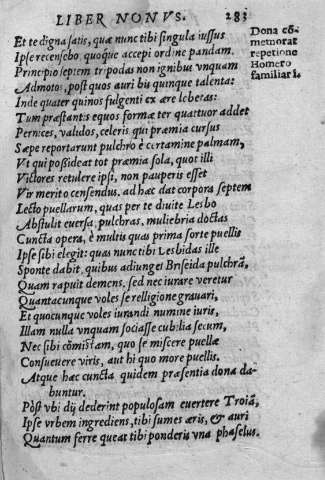 LIBER NONVS. 283
Et te digna satis, quæ nunc tibi singula iussus
Ipse recensebo quoque accepi ordine pandam.
Principio septem tripodas non ignibus vnquam
Admotos, post quos auri bis quinque talenta:
Inde quater quinos fulgenti ex ære lebetas:
Tum præstantis equos formæ ter quattuor addet
Pernices, validos, celeris qui præmia cursus
Sæpe reportarunt pulchro è certamine palmam,
Vt qui possideat tot præmia sola, quot illi
Victores retulere ipsi, non pauperis esset
Vir merito censendus. ad hæc dat corpora septem
Lecto puellarum, quas per te diuite Lesbo
Abstulit euersa, pulchras, muliebria doctas
Cuncta opera, è multis quas prima sorte puellis
Ipse sibi elegit: quas nunc tibi Lesbidas ille
Sponte dabit, quibus adiunget Briseida pulchrã,
Quam rapuit demens, sed nec iurare veretur
Quantacunque voles se relligione grauari,
Et quocunque voles iurandi numine iuris,
Illam nulla vnquam sociasse cubilia secum,
Nec sibi cõmistam, quo se miscere puellæ
Consueuere viris, aut hi quo more puellis.
Atque hæc cuncta quidem præsentia dona da-
buntur.
Pòst vbi dij dederint populosam euertere Troiã,
Ipse vrbem ingrediens, tibi sumes æris, & auri
Quantum ferre queat tibi ponderis vna phaselus.
Dona cõ-
memorat
repetione
Homero
familiari.